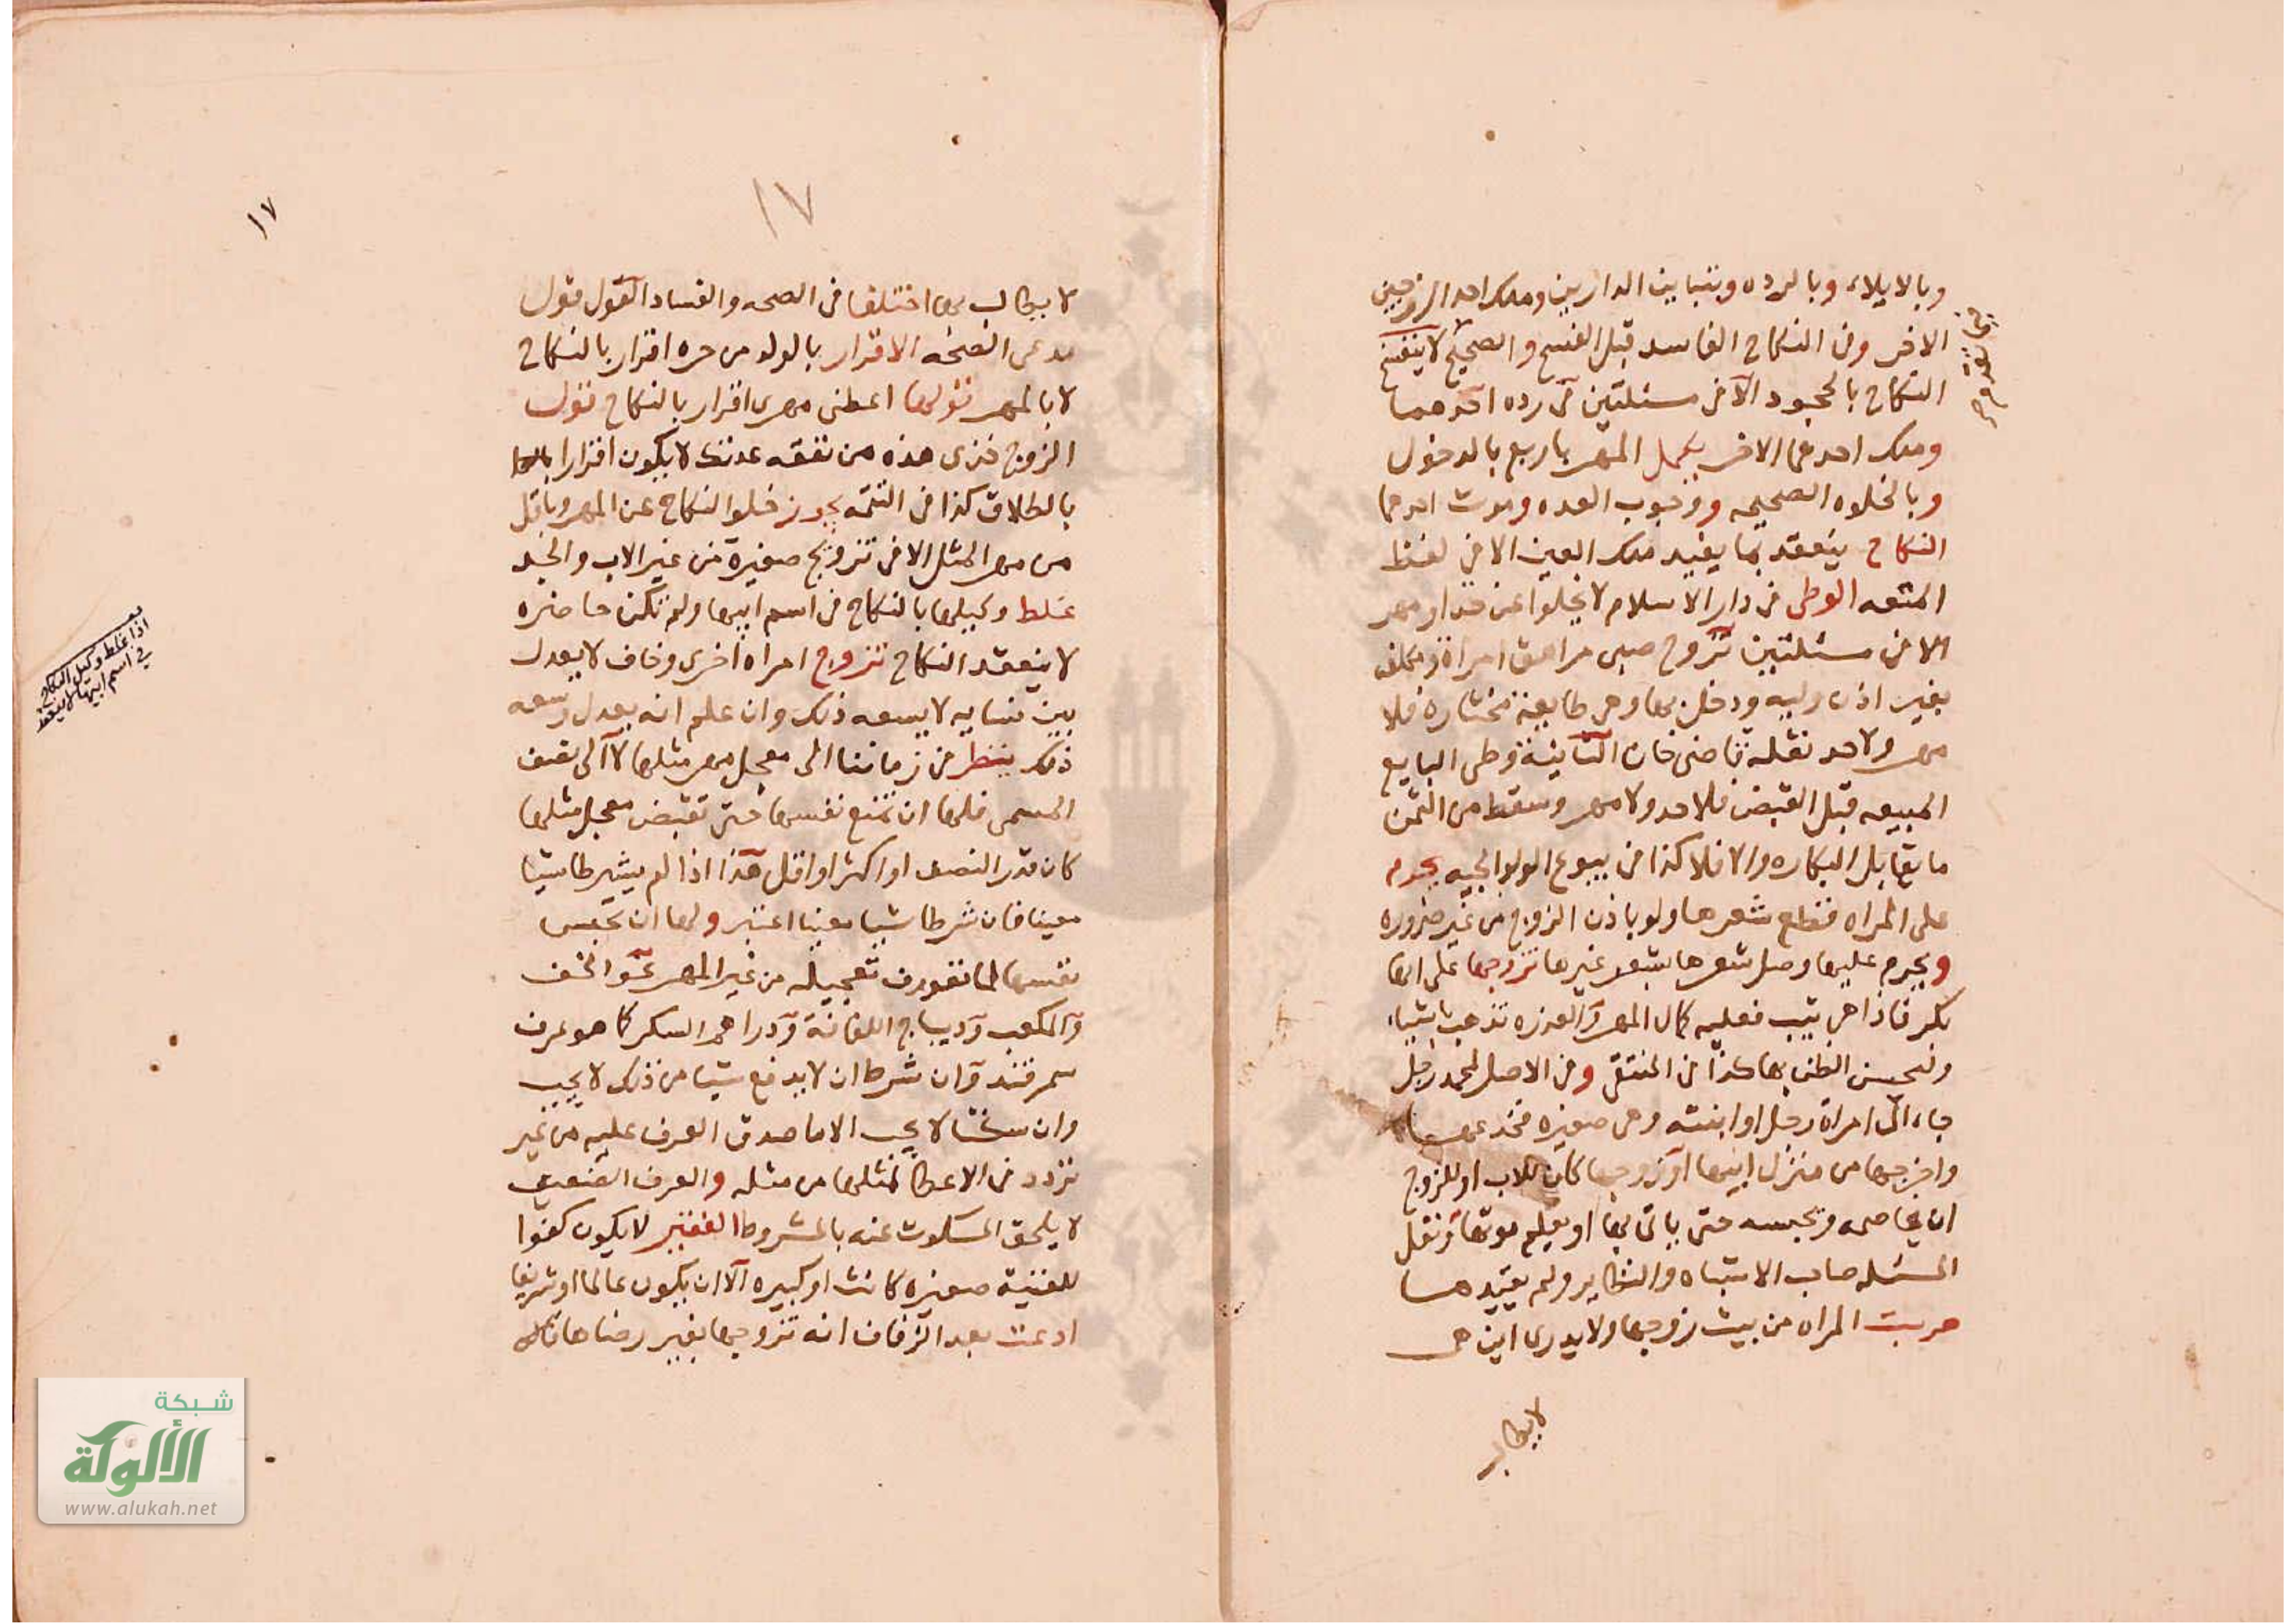 وبالايلاء وبالرده وبتباين الدارين وملك احد الزوجين
الاخر وفى النكاح الفاسد قبل الفسخ والصحيح لا ينفسخ
النكاح بالجحود الا فى مسئلتين فى رده احدهما
وملك احدهما الاخر يكمل المهر باربع بالدخول
وبالخلوه الصحيحه ووجوب العده وموت احدهما
النكاح ينعقد بما يفيد ملك العين الا فى لفظ
المتعه الوطى فى دار الاسلام لا يخلوا عن حد او مهر
الا فى مسئلتين تزوج صبى مراهق امراة مكلفه
بغير اذن وليه ودخل بها وهى طايعة مختاره فلا
مهر ولا حد نقله قاضى خان الثانية وطى البايع
المبيعه قبل القبض فلا حد ولا مهر وسقط من الثمن
ما يقابل البكاره والا فلا كذا فى بيوع الولوالجيه يحرم
على المراه قطع شعرها ولو باذن الزوج من غير ضروره
ويحرم عليها وصل شعرها بشعر غيرها تزوجها على انها
بكر فاذا هى ثيب فعليه كمال المهر والعذره تذهب باشياء
وليحسن الظن بها كذا فى المنتقى وفى الاصل لمحمد رجل
جاء الى امراة رجل او ابنته وهى صغيره فخدعها
واخرجها من منزل ابيها او زوجها كان للاب او للزوج
ان يخاصمه ويحبسه حتى ياتى بها او يعلم موتها ونقل
المسئله صاحب الاشباه والنظاير ولم يقيدها
هربت المراه من بيت زوجها ولا يدرى اين هى
لا يطالب
١٧
١٧
لا يطالب بها اختلفا فى الصحه والفساد القول قول
مدعى الصحه الاقرار بالولد من حره اقرار بالنكاح
لا بالمهر قولها اعطنى مهرى اقرار بالنكاح قول
الزوج خذى هذه من نفقه عدتك لا يكون اقرارا
بالطلاق كذا فى التتمه يجوز خلوا النكاح عن المهر وباقل
من مهر المثل الا فى تزويج صغيرة من غير الاب والجد
غلط وكيلها بالنكاح فى اسم ابيها ولم تكن حاضره
لا ينعقد النكاح تزوج امراه اخرى وخاف لا يعدل
بين نسايه لا يسعه ذلك وان علم انه يعدل وسعه
ذلك ينظر فى زماننا الى معجل مهر مثلها لا الى نصف
المسمى فلها ان تمنع نفسها حتى تقبض معجل مثلها
كان قدر النصف او اكثر او اقل هذا اذا لم يشترطا شيا
معينا فان شرطا شيا معينا اعتبر ولها ان تحبس
نفسها لما تعورف تعجيله من غير المهر نحو الخف
والمكعب وديباج اللفافة ودراهم السكر كما هو عرف
سمرقند وان شرط ان لا يدفع شيا من ذلك لا يجب
وان سكتا لا يجب الا ما صدق العرف عليه من غير
تردد فى الاعطا لمثلها من مثله والعرف الضعيف
لا يلحق المسكوت عنه بالمشروط الفقير لا يكون كفوا
للغنية صغيره كانت او كبيره الا ان يكون عالما او شريفا
ادعت بعد الزفاف انه تزوجها بغير رضاها
اذا غلط وكيل النكاح
فى اسم ابيها لا ينعقد
شبكة
الألوكة
www.alukah.net